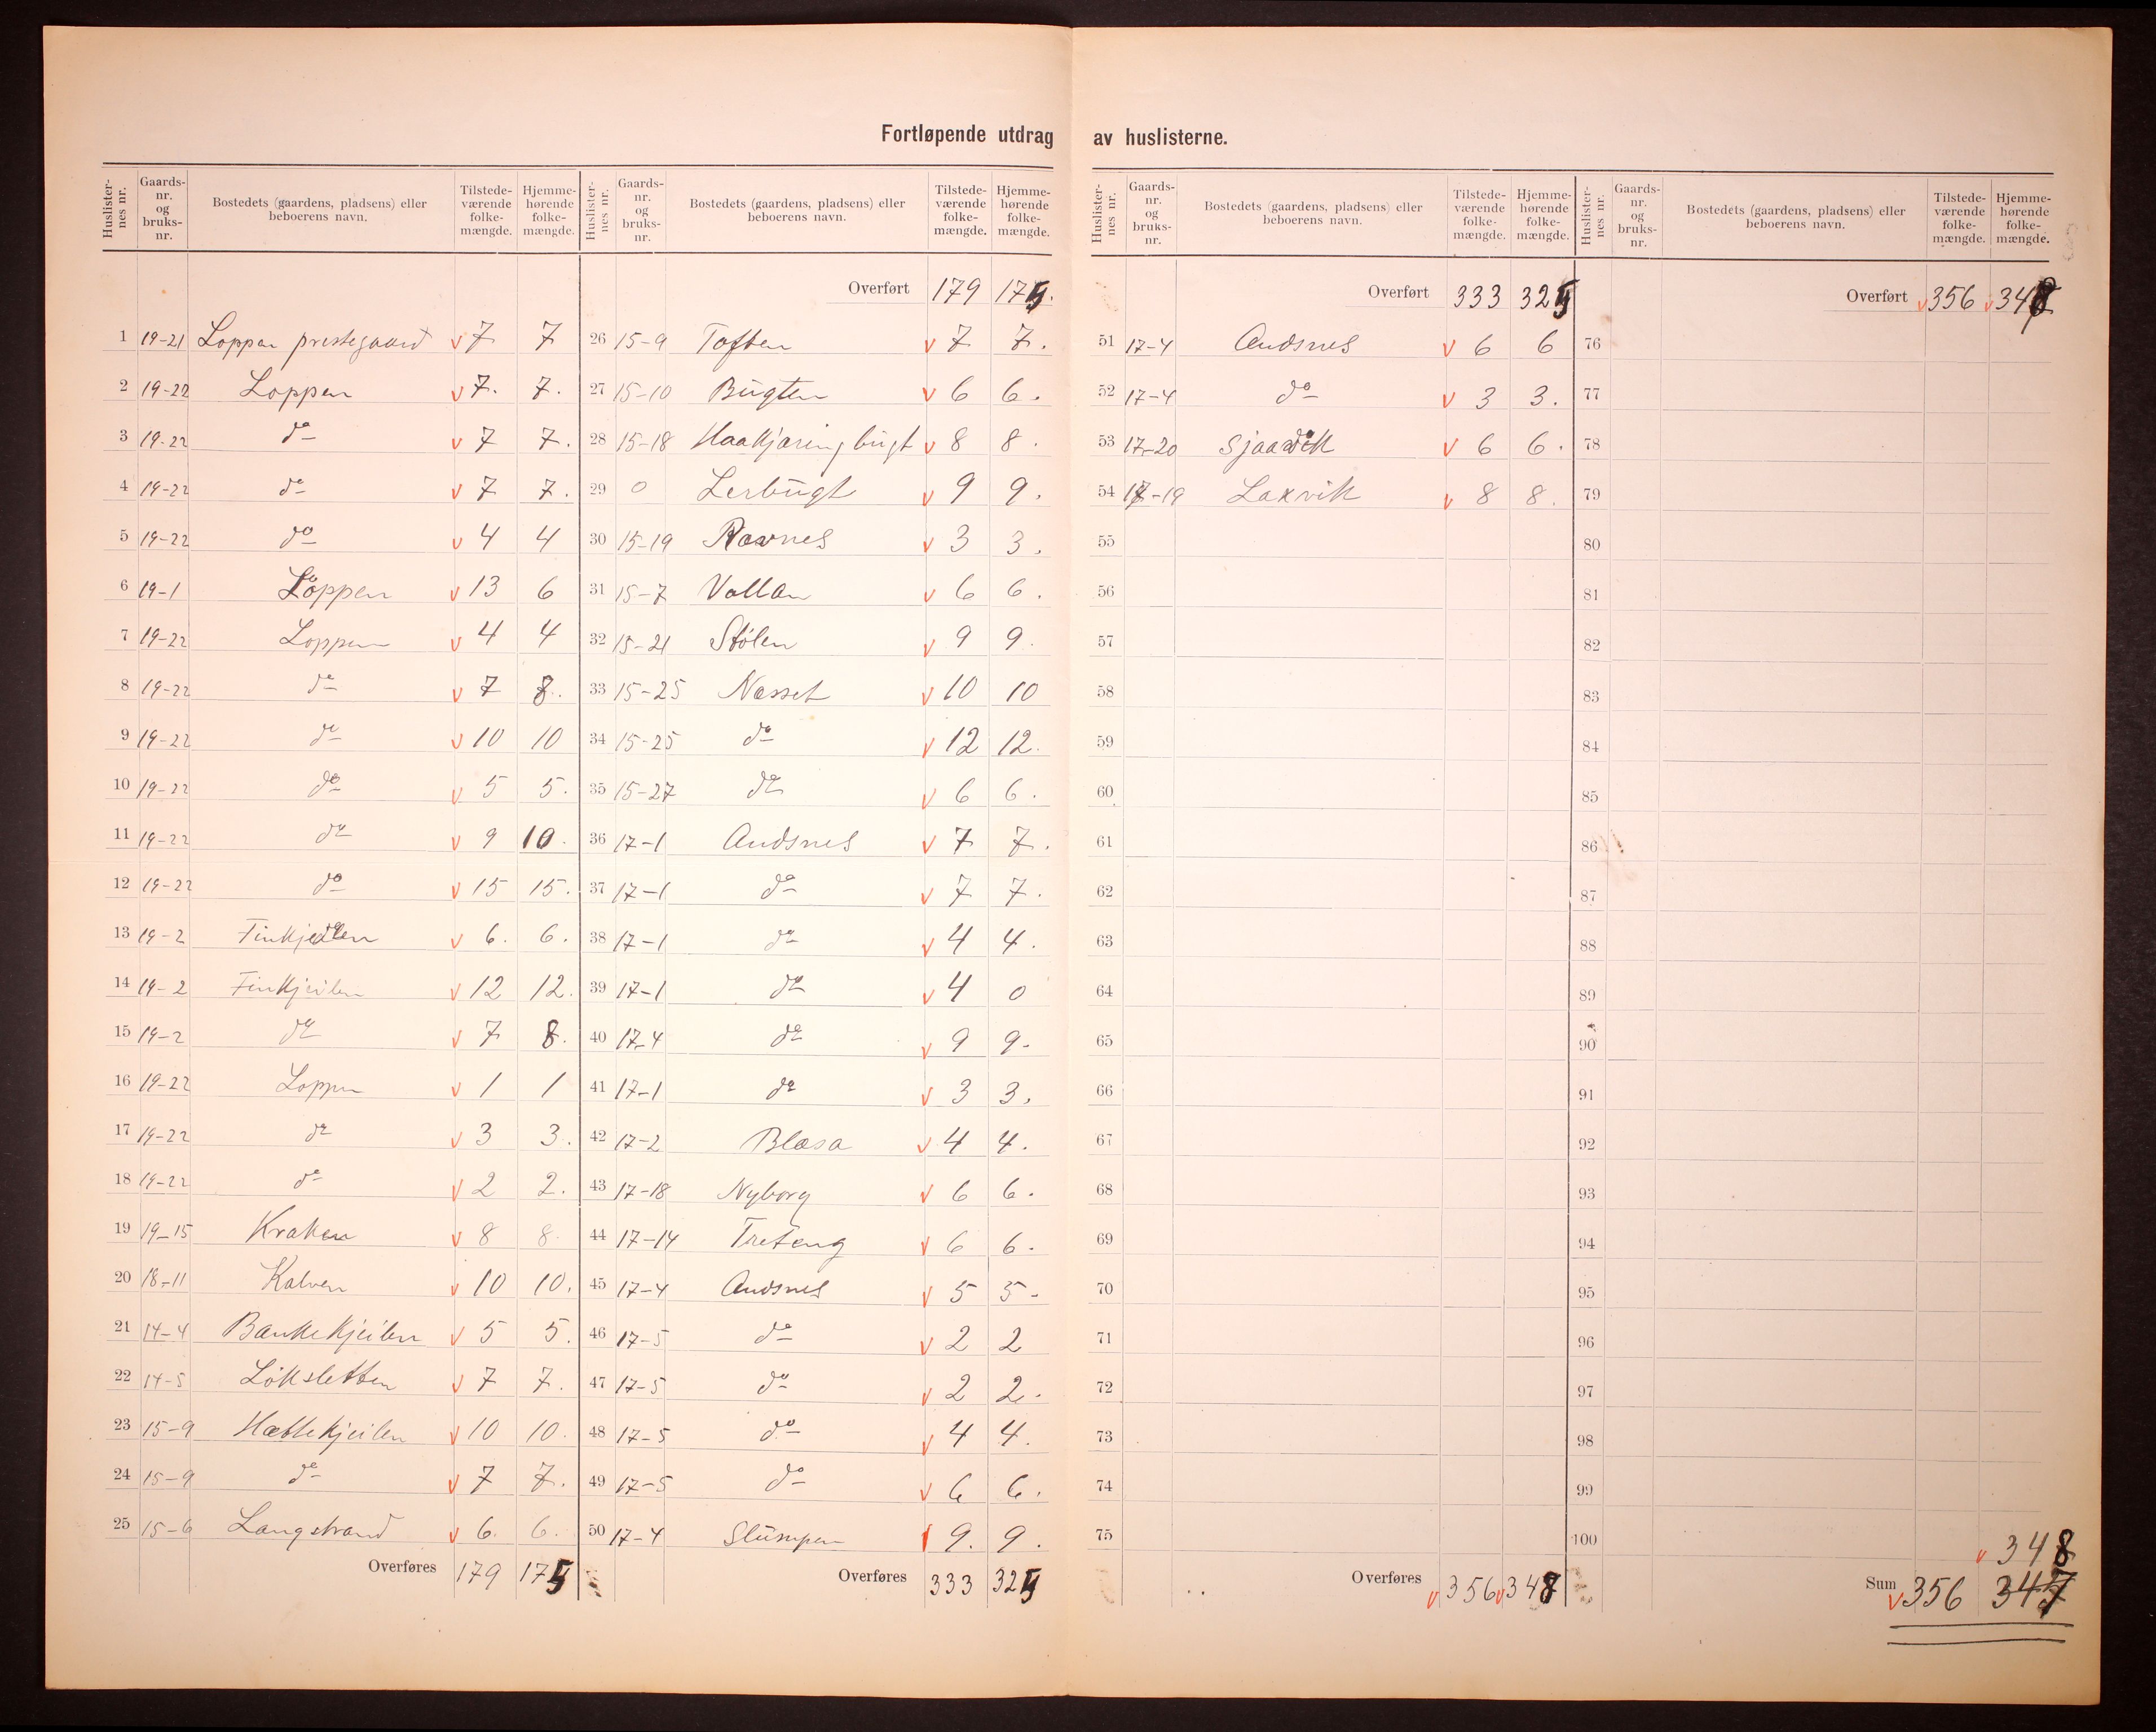 Fortløpende utdrag av huslisterne.
Huslisternes nr. | Gaards-nr. og bruks-nr. | Bostedets (gaardens, pladsens) eller beboerens navn. | Tilstede-værende folke-mængde. | Hjemme-hørende folke-mængde.
1 19-21 Loppen prestegaard v 7 7
2 19-22 Loppen v 7. 7.
3 19-22 do v 7 7.
4 19-22 do v 7 7.
5 19-22 do v 4 4
6 19-1 Loppen v 13 6
7 19-22 Loppen v 4 4
8 19-22 do v 7 8.
9 19-22 do v 10 10
10 19-22 do v 5 5.
11 19-22 do v 9 10.
12 19-22 do v 15 15.
13 19-2 Finkjeilen v 6. 6.
14 19-2 Finkjeilen v 12 12.
15 19-2 do v 7 8.
16 19-22 Loppen v 1 1
17 19-22 do v 3 3.
18 19-22 do v 2 2.
19 19-15 Kraken v 8 8.
20 18-11 Kalven v 10 10.
21 14-4 Bankekjeilen v 5 5.
22 14-5 Løksletten v 7 7.
23 15-9 Hættekjeilen v 10 10.
24 15-9 do v 7 7.
25 15-6 Langstrand v 6. 6.
Overføres 179 175
Huslisternes nr. | Gaards-nr. og bruks-nr. | Bostedets (gaardens, pladsens) eller beboerens navn. | Tilstede-værende folke-mængde. | Hjemme-hørende folke-mængde.
Overført 179 175.
26 15-9 Toften v 7 7.
27 15-10 Bugten v 6 6.
28 15-18 Haakjæringbugt v 8 8.
29 0 Lerbugt v 9 9.
30 15-19 Ravnes v 3 3.
31 15-7 Vollan v 6 6.
32 15-21 Stølen v 9 9.
33 15-25 Næsset v 10 10
34 15-25 do v 12 12.
35 15-27 do v 6 6.
36 17-1 Andsnes v 7 7.
37 17-1 do v 7 7.
38 17-1 do v 4 4.
39 17-1 do v 4 0
40 17-4 do v 9 9.
41 17-1 do v 3 3.
42 17-2 Blæsa v 4 4.
43 17-18 Nyborg v 6 6.
44 17-14 Treteng v 6 6.
45 17-4 Andsnes v 5 5-
46 17-5 do v 2 2
47 17-5 do v 2 2.
48 17-5 do v 4 4.
49 17-5 do v 6 6.
50 17-4 Slumpen 9. 9.
Overføres 333 325
Huslisternes nr. | Gaards-nr. og bruks-nr. | Bostedets (gaardens, pladsens) eller beboerens navn. | Tilstede-værende folke-mængde. | Hjemme-hørende folke-mængde.
Overført 333 325
51 17-4 Andsnes v 6 6
52 17-4 do v 3 3.
53 17-20 Sjaavik v 6 6.
54 17-19 Laxvik v 8 8.
55
56
57
58
59
60
61
62
63
64
65
66
67
68
69
70
71
72
73
74
75
Overføres v 356 v 348
Huslisternes nr. | Gaards-nr. og bruks-nr. | Bostedets (gaardens, pladsens) eller beboerens navn. | Tilstede-værende folke-mængde. | Hjemme-hørende folke-mængde.
Overført v 356 v 348
76
77
78
79
80
81
82
83
84
85
86
87
88
89
90
91
92
93
94
95
96
97
98
99
100
v 348
Sum v 356 347